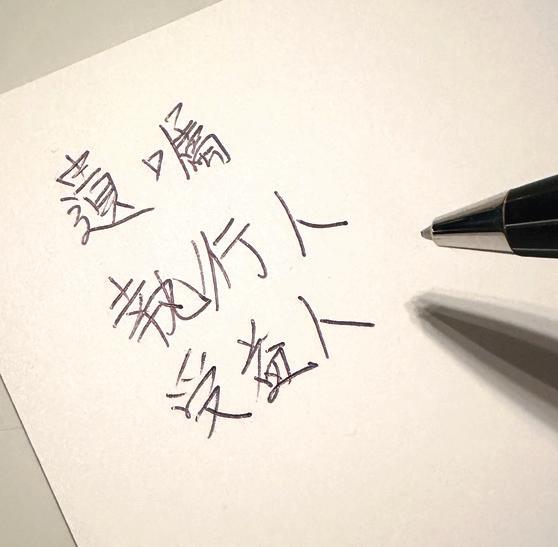 遺囑
執行人
受益人